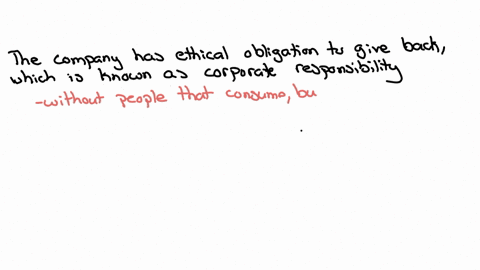 The company has ethical obligation to give back,
which is known as corporate responsibility
-without people that consume, bu